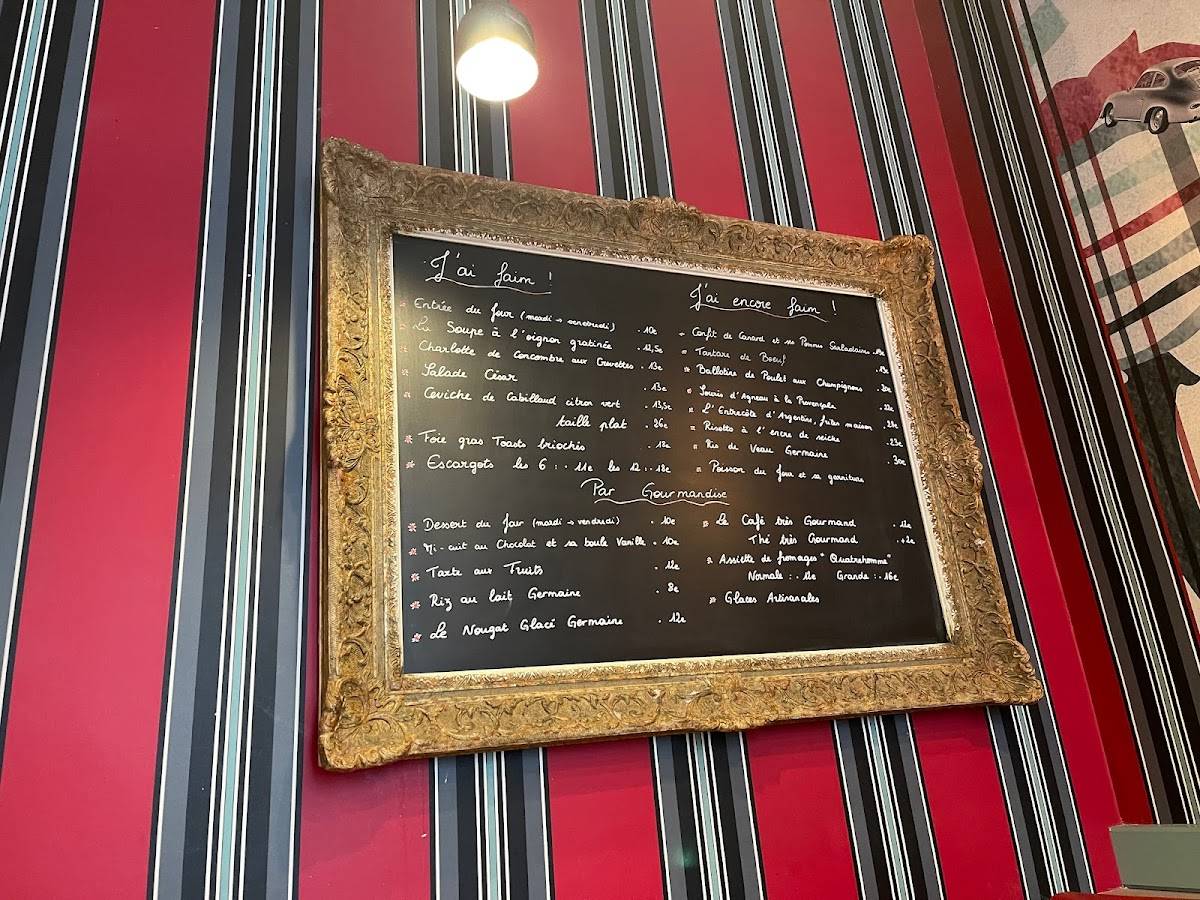 J'ai faim !
Entrée du Jour (mardi → vendredi) . 10€
La Soupe à l'oignon gratinée . 12,5€
Charlotte de concombre aux Crevettes . 13€
Salade César . 13€
Ceviche de Cabillaud citron vert . 13,5€
taille plat . 26€
Foie gras Toasts briochés
Escargots les 6 : . 11€ les 12 : . 18€
J'ai encore faim !
Confit de Canard et ses Pommes Sarladaises
Tartare de Boeuf
Ballotine de Poulet aux Champignons
Souris d'Agneau à la Provençale
L'Entrecôte d'Argentine, frites maison
Risotto à l'encre de seiche
Ris de Veau Germaine . 30€
Poisson du Jour et sa garniture
Par Gourmandise
Dessert du Jour (mardi → vendredi) . 10€
Mi-cuit au Chocolat et sa boule Vanille . 10€
Tarte aux Fruits . 11€
Riz au lait Germaine . 8€
Le Nougat Glacé Germaine . 12€
Le Café très Gourmand . 11€
Thé très Gourmand . +2€
Assiette de fromages "Quatrehomme"
Normale : . 11€ Grande : . 16€
Glaces Artisanales